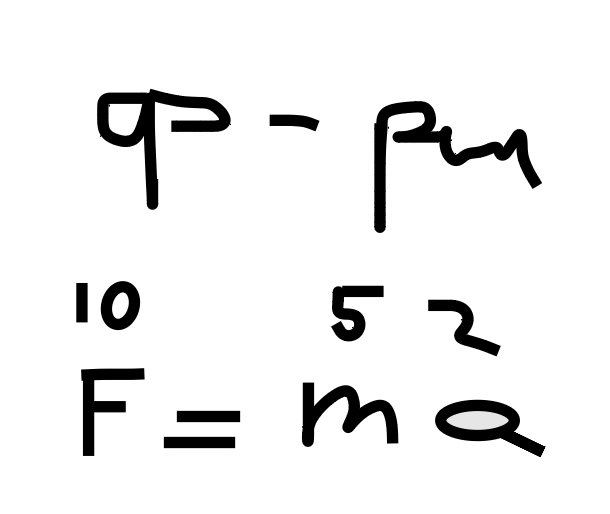 - pm
10 5 2
F = ma